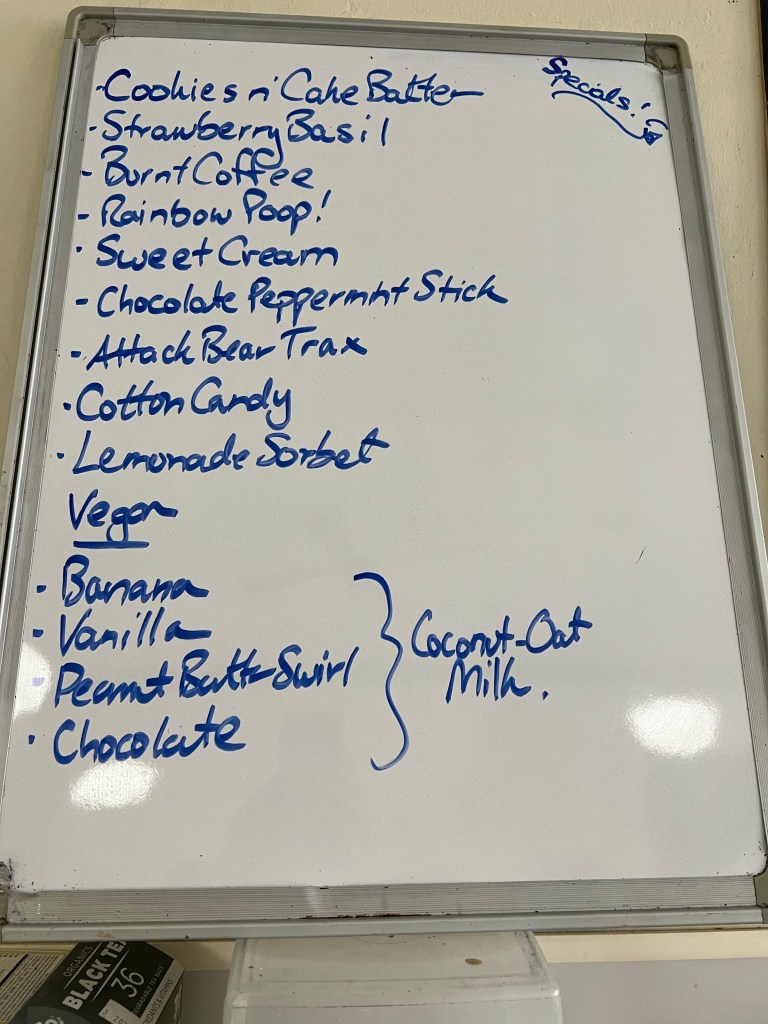 Specials!
- Cookies n' Cake Batter
- Strawberry Basil
- Burnt Coffee
- Rainbow Poop!
· Sweet Cream
- Chocolate Peppermint Stick
- Attack Bear Trax
· Cotton Candy
· Lemonade Sorbet
Vegan
· Banana
· Vanilla
· Peanut Butter Swirl
· Chocolate
Coconut-Oat
Milk.
ORGANICS
BLACK TEA
36